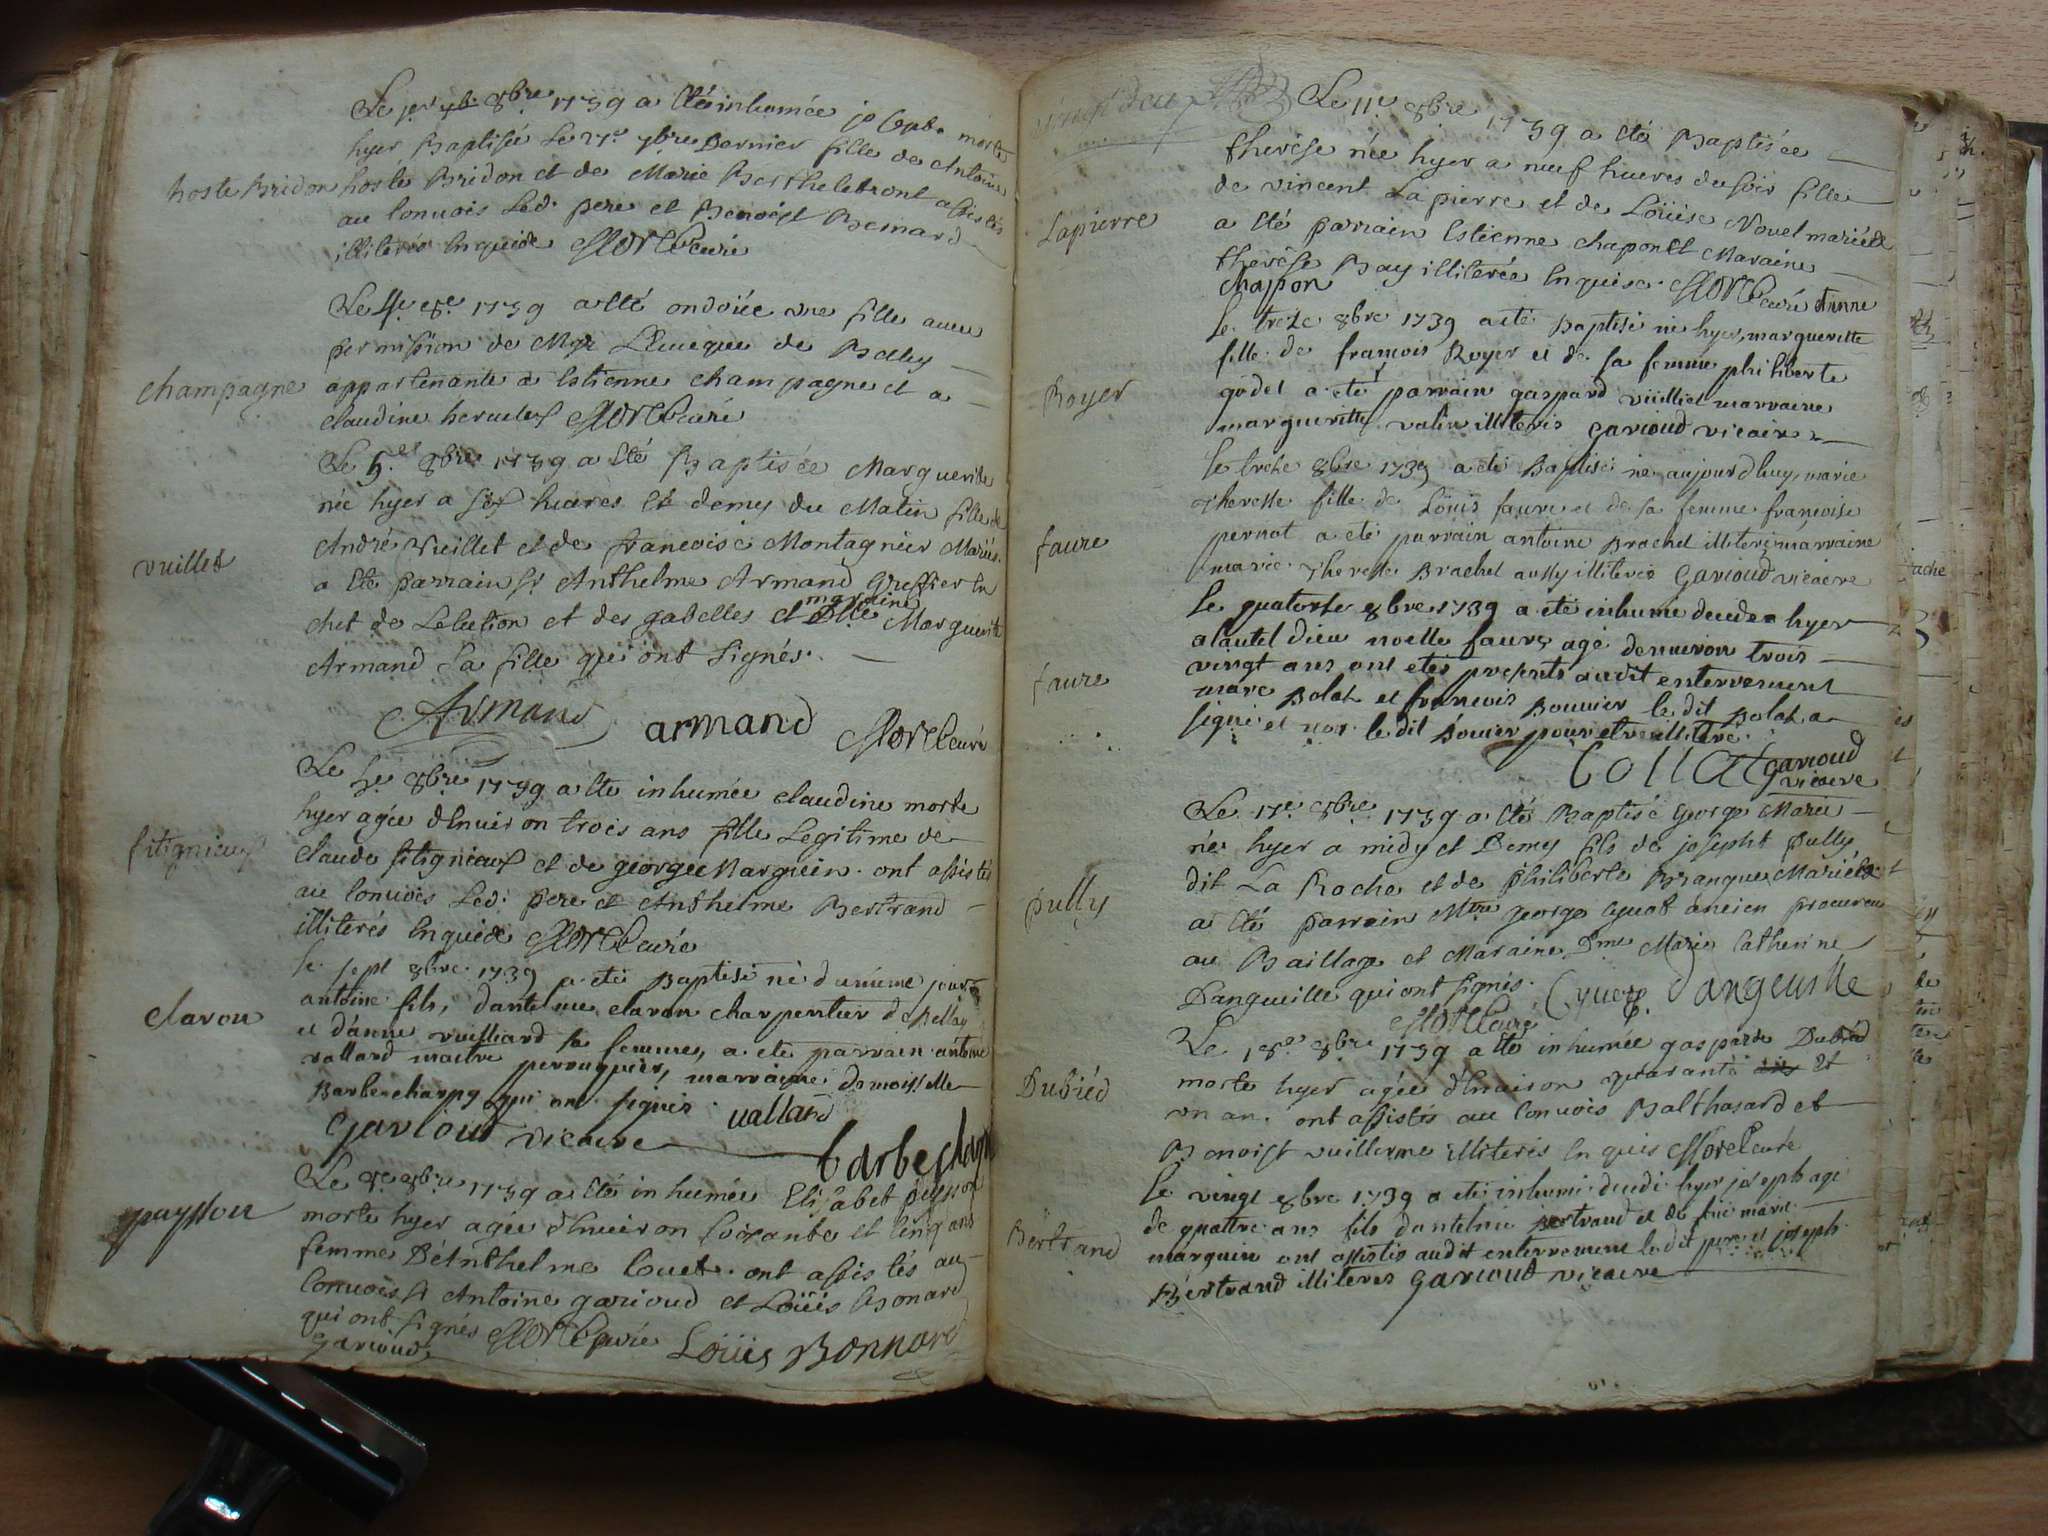 Le 1er 8bre 1739 a eté inhumée josephe morte
hyer Baptisée Le 27e 7bre Dernier fille de Antoine
hoste Bridon
hoste Bridon et de Marie Berthelet ont assistés
au Convois Led. pere et Benoist Bernard
illiterés Enquide Morel Curé
Le 4e 8e 1739 a eté ondoiée une fille avec
permission de Mgr L'Eveque de Belley
champagne
appartenante a Estienne champagne et a
claudine hercules Morel Curé
Le 5e 8bre 1739 a eté Baptisée Marguerite
née hyer a six heures et demy du Matin fille de
vuillet
André Vuillet et de francoise Montagnier Mariés.
a eté parrain Sr Anthelme Armand Greffier En
chef de L'election et des gabelles et maraine Dlle Marguerite
Armand sa fille qui ont signés.
Armand armand Morel Curé
Le 5e 8bre 1739 a eté inhumée claudine morte
hyer agée d'Environ trois ans fille Legitime de
fitignieux
claude fitignieux et de george Marguin. ont assistés
au Convois Led. pere et Anthelme Bertrand
illiterés Enquide Morel Curé
le sept 8bre 1739 a eté Baptisé né du meme jour
clavon
antoine fils, dantelme clavon charpentier de Bellay
et d'anne vuilliard sa femme, a eté parrain antoine
vallard maitre perruquier, marraine demoisselle
Barbe champy qui ont signés. vallard
Garioud vicaire
Le 8e 8bre 1739 a eté inhumée Elisabet peysson
payssou
morte hyer agée d'Environ soixante et Cinq ans
femme D'Anthelme Couet. ont assistés au
Convois Sr Antoine garioud et Loüis Bonard
qui ont signés Morel Curé Loüis Bonnard
Garioud
Le 11e 8bre 1739 a eté Baptisée
therése née hyer a neuf heures du soir fille
Lapierre
de vincent Lapierre et de Loüise Novel mariés
a eté parrain Estienne chapon et Maraine
therése Bay illiterée Enquise. Morel Curé
chapon
le treze 8bre 1739 a eté Baptisé né hyer, margueritte
fille de françois Royer et de sa femme philiberte
Royer
godet a eté parrain gaspard vüilliet marraine
margueritte valin illiteris Garioud vicaire
le treze 8bre 1739 a eté Baptisé né aujourdhuy, marie
Theresse fille de Loüis faure et de sa femme françoise
faure
pernot a eté parrain antoine Brachet illiteré marraine
marie Theresse Brachet aussy illiterée Garioud vicaire
le quatorze 8bre 1739 a eté inhumé decede hyer
a lautel Dieu noelle faure, agé denviron trois
faure
vingt ans ont etés presents audit enterrement
marc Bolat et françois Bouvier le dit Bolat a
signé et non le dit Bouvier pour etre illiteré.
Collat Garioud
vicaire
Le 17e 8bre 1739 a eté Baptisé George Marie
né hyer a midy et Demy fils de josepht pully
pully
dit La Roche et de philiberte Brangue Mariés
a eté parrain Mtre George Cyuot ancien procureur
au Baillage et Maraine Dme Marie Catherine
Dangeville qui ont signés. Cyuot Dangeville
Morel Curé
Le 18e 8bre 1739 a eté inhumée gasparde Dubiéd
Dubiéd
morte hyer agée d'Environ quarante et
un an. ont assistés au Convois Balthasard et
Benoist vuillerme illiterés Enquis Morel Curé
le vingt 8bre 1739 a eté inhumé decedé hyer joseph agé
Bertrand
de quattre ans fils dantelme Bertrand et de fue marie
marguin ont assistés audit enterrement ledit pere et joseph
Bertrand illiteres Garioud vicaire